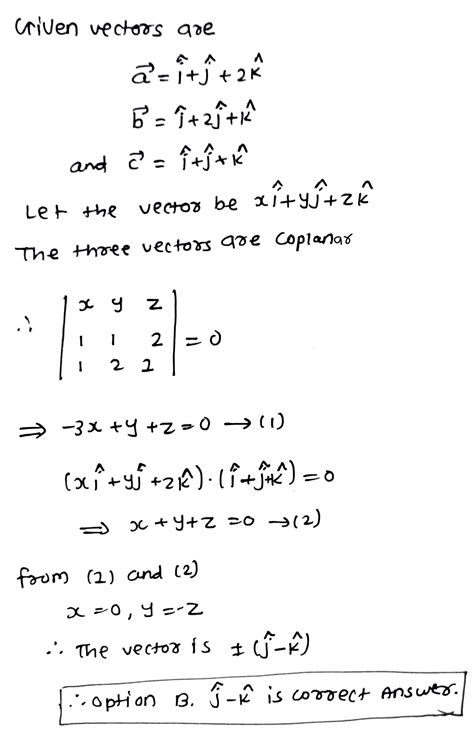 Given vectors are
a⃗ = î+ĵ+2k̂
b⃗ = î+2ĵ+k̂
and c⃗ = î+ĵ+k̂
Let the vector be xî+yĵ+zk̂
The three vectors are coplanar
∴ | x y z |
| 1 1 2 | = 0
| 1 2 1 |
⇒ -3x+y+z=0 → (1)
(xî+yĵ+zk̂)·(î+ĵ+k̂)=0
⇒ x+y+z=0 →(2)
from (2) and (2)
x=0, y=-z
∴ The vector is ±(ĵ-k̂)
∴ option B. ĵ-k̂ is correct Answer.